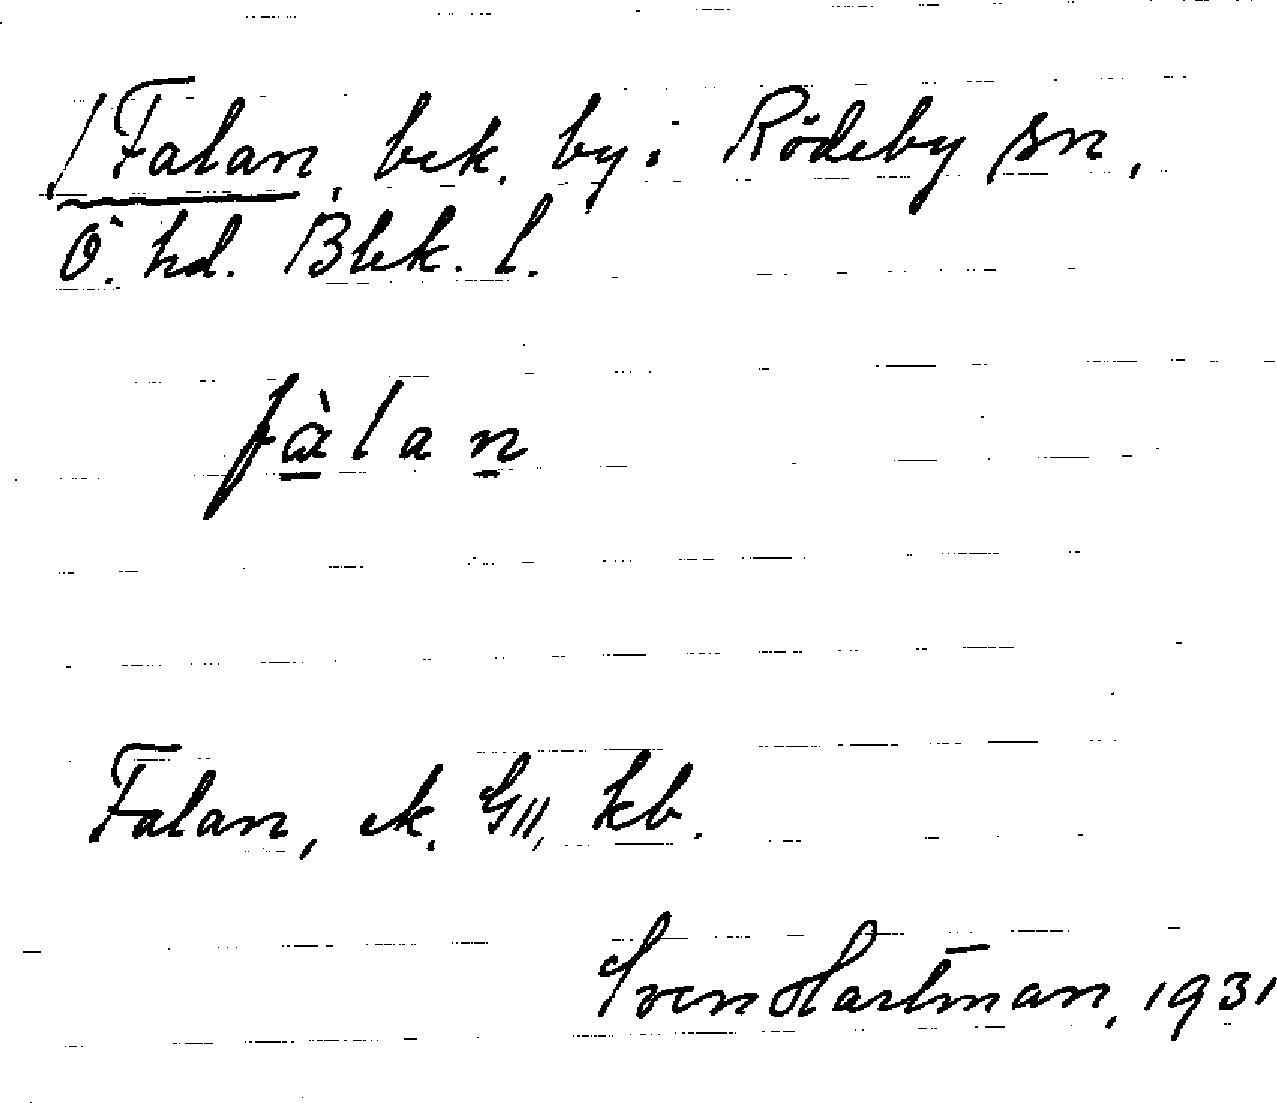 /Falan, bek. by. Rödeby sn,
Ö. hd. Blek. l.
fàlan
Falan, ek. GII, kb.
Sven Hartman, 1931